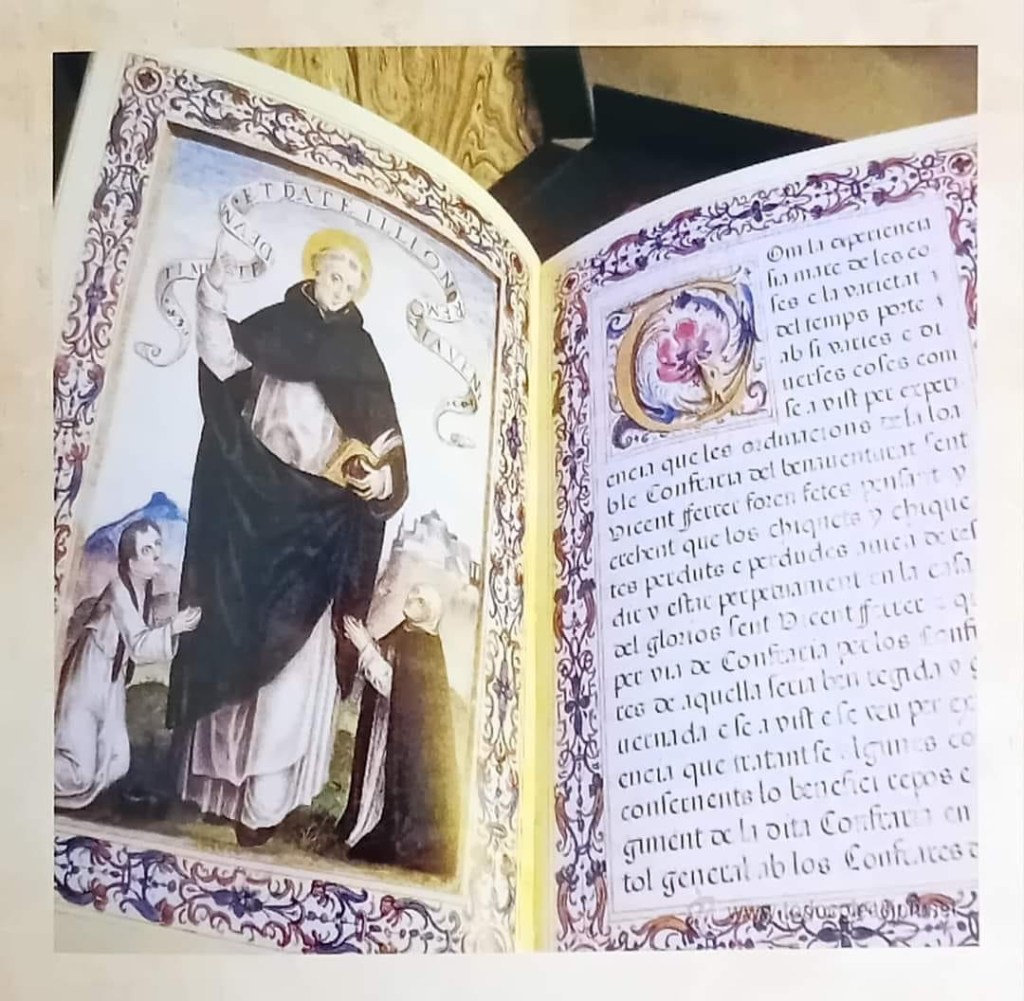 TIMETE DEVM ET DATE ILLI ONOREM
Om la experiencia
sia mare de les co
ses e la varietat
del temps porte
ab si varies e di
uerses coses com
se a vist per experi
encia que les ordinacions de la loa
ble Confraria del benauenturat sent
Vicent fferrer foren fetes pensant y
crehent que los chiquets y chique
tes perduts e perdudes auia de res
dir y estar perpetuament en la casa
del glorios sent Vicent fferrer
per via de Confraria per los Confr
res de aquella seria ben regida y g
uernada e se a vist e se veu per ex
encia que tratantse Algunes co
conserne nts lo benefici repos e
giment de la dita Confraria en
tol general ab los Confrares